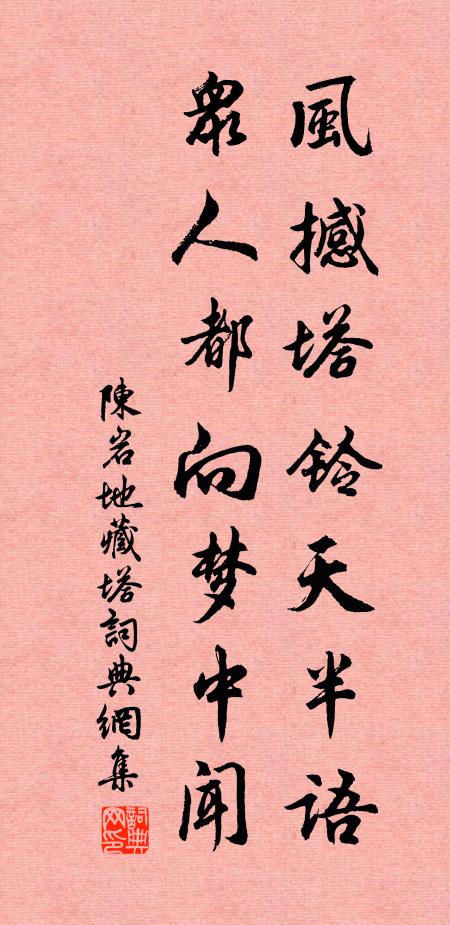 風撼塔鈴天半語
眾人都向梦中聞
陳岩地藏塔詞典網集
詞典网印